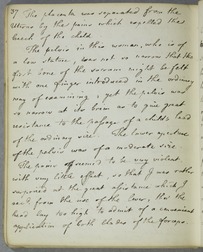 37 The placenta was separated from the
Uterus by the pains which expelled the
breech of the child.
The pelvis in this woman, who is of
a low stature, was not so narrow that the
first bone of the sacrum might be felt
with one finger introduced in the ordinary
way of examining; yet the pelvis was
so narrow at its brim as to give great
resistance to the passage of a child's head
of the ordinary size. The lower aperture
of the pelvis was of a moderate size.
The pains seemed to be very violent
with very little effect, so that I was rather
surprised at the great assistance which I
had from the use of the lever, tho' the
head lay too high to admit of a convenient
application of both blades of the forceps.